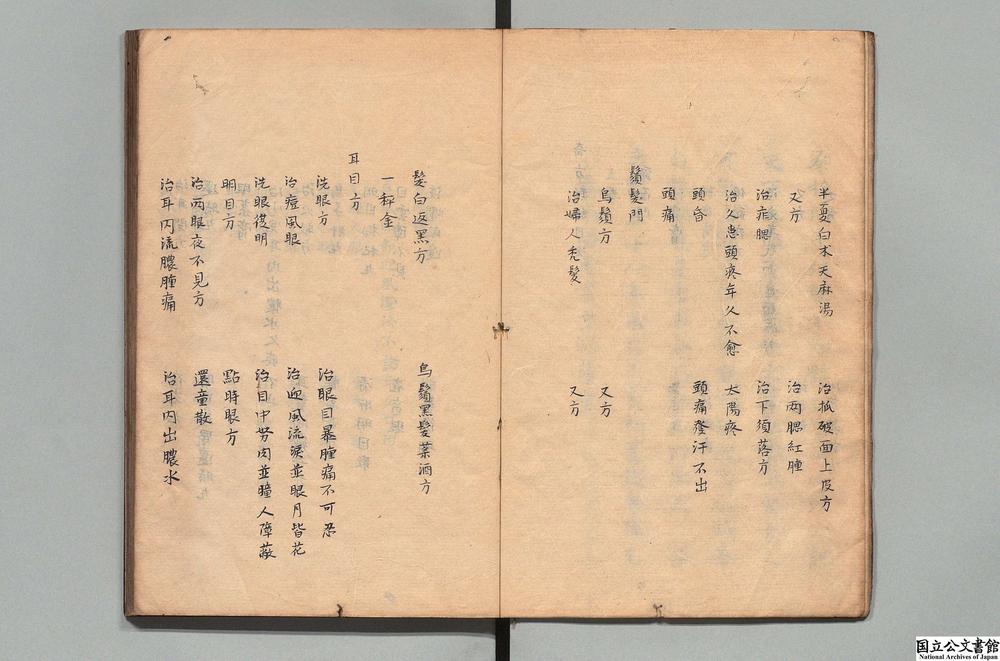 半夏白朮天麻湯　治抓破面上皮方
又方　治兩腮紅腫
治痄腮　治下須落方
治久患頭疼年久不愈　太陽疼
頭昏　頭痛發汗不出
頭痛
鬚髮門
烏鬚方　又方
治婦人禿髮　又方
髮白返黑方　烏鬚黑髮藥酒方
一秤金
耳目方
洗眼方　治眼目暴腫痛不可忍
治瘟風眼　治迎風流淚並眼月皆花
洗眼復明　治目中努肉並瞳人障蔽
明目方　點時眼方
治兩眼夜不見方　還童散
治耳內流膿腫痛　治耳內出膿水
国立公文書館
National Archives of Japan